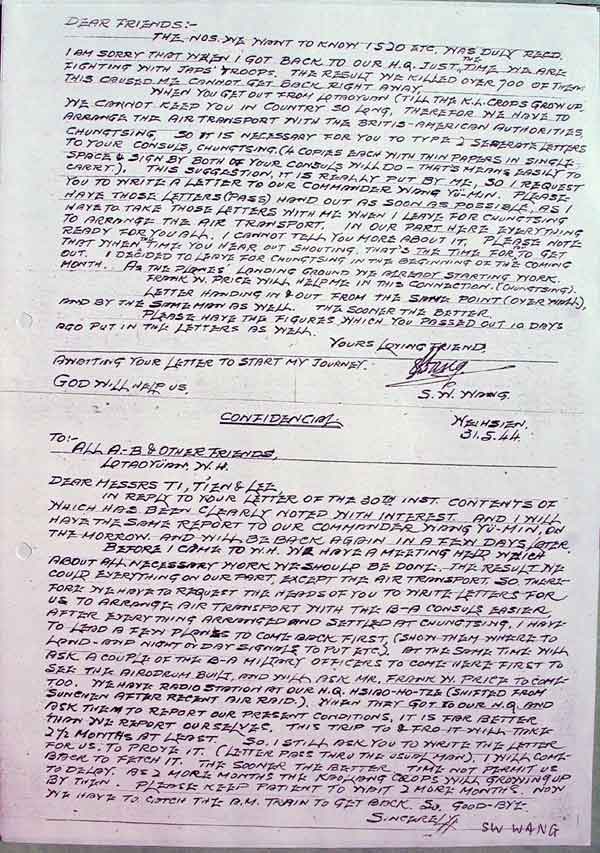 DEAR FRIENDS:-
THE NOS. WE WANT TO KNOW 1520 ETC. WAS DULY RECD.
I AM SORRY THAT WHEN I GOT BACK TO OUR H.Q. JUST THE TIME WE ARE
FIGHTING WITH JAPS' TROOPS. THE RESULT WE KILLED OVER 700 OF THEM
THIS CAUSED ME CANNOT GET BACK RIGHT AWAY.
WHEN YOU GET OUT FROM LOTAOYUAN (TILL THE K.L. CROPS GROW UP.
WE CANNOT KEEP YOU IN COUNTRY SO LONG. THEREFOR WE HAVE TO
ARRANGE THE AIR TRANSPORT WITH THE BRITIS-AMERICAN AUTHORITIES,
CHUNGTSING. SO IT IS NECESSARY FOR YOU TO TYPE 2 SEPERATE LETTERS
TO YOUR CONSULS, CHUNGTSING. (4 COPIES EACH WITH THIN PAPERS IN SINGLE-
SPACE & SIGN BY BOTH OF YOUR CONSULS WILL DO - THAT'S MEANS EASILY TO
CARRY.). THIS SUGGESTION, IT IS REALLY PUT BY ME, SO I REQUEST
YOU TO WRITE A LETTER TO OUR COMMANDER WANG YÜ-MIN. PLEASE
HAVE THOSE LETTERS (PASS) HAND OUT AS SOON AS POSSIBLE, AS I
HAVE TO TAKE THOSE LETTERS WITH ME WHEN I LEAVE FOR CHUNGTSING
TO ARRANGE THE AIR TRANSPORT. IN OUR PART HERE EVERYTHING
READY FOR YOU ALL. I CANNOT TELL YOU MORE ABOUT IT. PLEASE NOTE
THAT WHEN TIME YOU HEAR OUT SHOUTING. THAT'S THE TIME FOR TO GET
OUT. I DECIDED TO LEAVE FOR CHUNGTSING IN THE BEGINNING OF THE COMING
MONTH. AS THE PLANES' LANDING GROUND WE ALREADY STARTING WORK.
FRANK W. PRICE WILL HELP ME IN THIS CONNECTION. (CHUNGTSING).
LETTER HANDING IN & OUT FROM THE SAME POINT (OVER WALL),
AND BY THE SAME MAN AS WELL. THE SOONER THE BETTER.
PLEASE HAVE THE FIGURES WHICH YOU PASSED OUT 10 DAYS
AGO PUT IN THE LETTERS AS WELL.
YOURS LOVING FRIEND,
AWAITING YOUR LETTER TO START MY JOURNEY.
S. W. WANG.
GOD WILL HELP US.
CONFIDENCIAL
WEIHSIEN.
31.5.44.
TO:-
ALL A.-B & OTHER FRIENDS,
LOTAOYÜAN, W.H.
DEAR MESSRS TI, TIEN & LEE,
IN REPLY TO YOUR LETTER OF THE 30TH INST. CONTENTS OF
WHICH HAS BEEN CLEARLY NOTED WITH INTEREST. AND I WILL
HAVE THE SAME REPORT TO OUR COMMANDER WANG YÜ-MIN, ON
THE MORROW. AND WILL BE BACK AGAIN IN A FEW DAYS LATER.
BEFORE I COME TO W.H. WE HAVE A MEETING HELD WHICH
ABOUT ALL NECESSARY WORK WE SHOULD BE DONE. THE RESULT WE
COULD EVERYTHING ON OUR PART, EXCEPT THE AIR TRANSPORT. SO THERE-
FORE WE HAVE TO REQUEST THE HEADS OF YOU TO WRITE LETTERS FOR
US TO ARRANGE AIR TRANSPORT WITH THE B-A CONSULS EASIER.
AFTER EVERYTHING ARRANGED AND SETTLED AT CHUNGTSING. I HAVE
TO LEAD A FEW PLANES TO COME BACK FIRST, (SHOW THEM WHERE TO
LAND- AND NIGHT OR DAY SIGNALS TO PUT ETC). AT THE SAME TIME WILL
ASK A COUPLE OF THE B-A MILITARY OFFICERS TO COME HERE FIRST TO
SEE THE AIRODRUM BUILT, AND WILL ASK MR. FRANK W. PRICE TO COME
TOO. WE HAVE RADIO STATION AT OUR H.Q. HSIAO-HO-TZE (SHIFTED FROM
SUNCHEN AFTER RECENT AIR RAID). WHEN THEY GOT TO OUR H.Q. AND
ASK THEM TO REPORT OUR PRESENT CONDITIONS, IT IS FAR BETTER
THAN WE REPORT OURSELVES. THIS TRIP TO & FRO IT WILL TAKE
2½ MONTHS AT LEAST. SO, I STILL ASK YOU TO WRITE THE LETTER
FOR US. TO PROVE IT. (LETTER PASS THRU THE USUAL MAN). I WILL COME
BACK TO FETCH IT. THE SOONER THE BETTER. TIME NOT PERMIT US
TO DELAY. AS 2 MORE MONTHS THE KAOLIANG CROPS WILL GROWING UP
BY THEN. PLEASE KEEP PATIENT TO WAIT 2 MORE MONTHS. NOW
WE HAVE TO CATCH THE A.M. TRAIN TO GET BACK. SO, GOOD-BYE.
SINCERELY
SW WANG